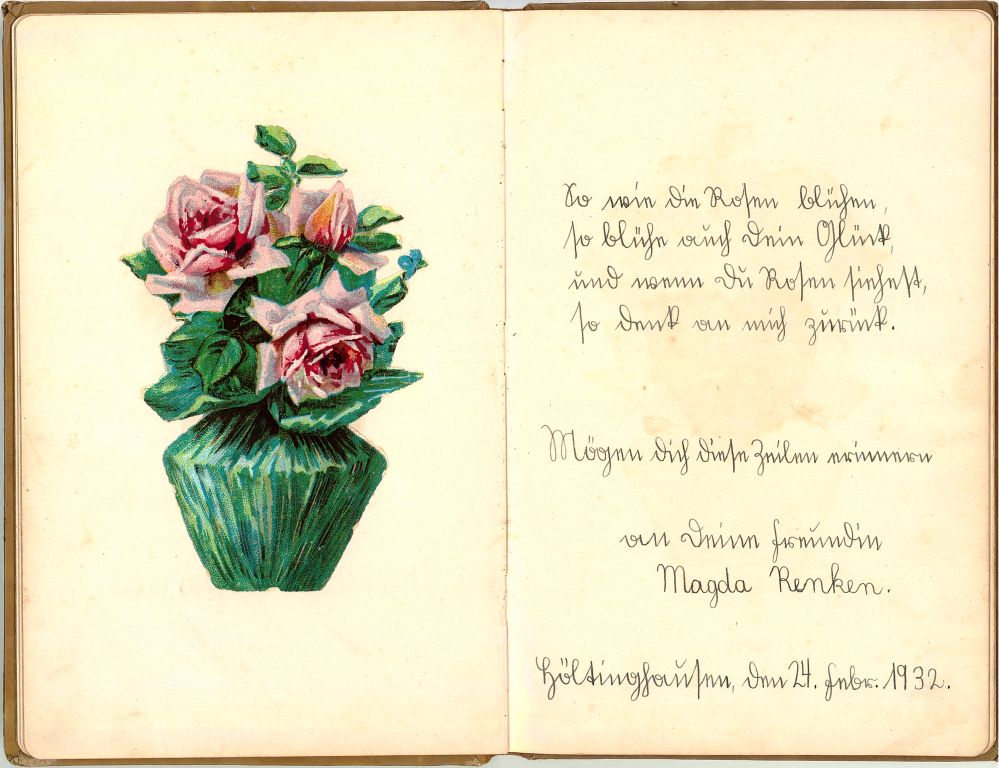 So wie die Rosen blühen,
so blühe auch Dein Glück,
und wenn Du Rosen siehest,
so denk an mich zurück.
Mögen dich diese Zeilen erinnern
an Deine Freundin
Magda Renken.
Höltinghausen, den 24. Febr. 1932.